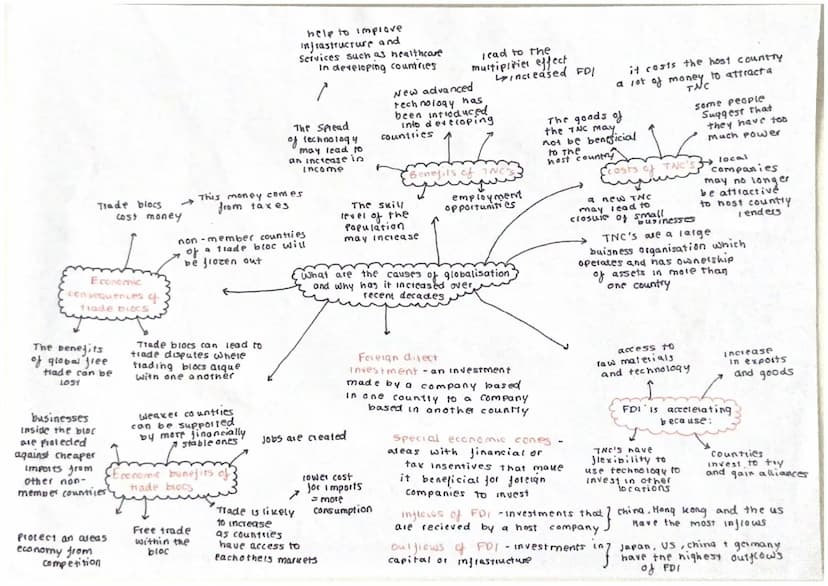 help to improve
infrastructure and
services such as healthcare
in developing countries
lead to the
multiplier effect
↳ increased FDI
it costs the host country
a lot of money to attract a
TNC
New advanced
technology has
been introduced
into developing
countries
The spread
of technology
may lead to
an increase in
income
The goods of
the TNC may
not be beneficial
to the
host country
some people
suggest that
they have too
much power
Benefits of TNC's
Costs of TNC's
local
companies
may no longer
be attractive
to host country
lenders
The skill
level of the
population
may increase
employment
opportunities
a new TNC
may lead to
closure of small
businesses
Trade blocs
cost money
→ This money comes
from taxes
non-member countries
of a trade bloc will
be frozen out
TNC's are a large
buisness organisation which
operates and has ownership
of assets in more than
one country
Economic
consequences of
trade blocs
What are the causes of globalisation
and why has it increased over
recent decades
The benefits
of global free
trade can be
lost
Trade blocs can lead to
trade disputes where
trading blocs argue
with one another
Foreign direct
investment - an investment
made by a company based
in one country to a company
based in another country
access to
raw materials
and technology
increase
in exports
and goods
FDI is accelerating
because:
TNC's have
flexibility to
use technology to
invest in other
locations
Countries
invest to try
and gain alliances
businesses
inside the bloc
are protected
against cheaper
imports from
other non-
member countries
weaker countries
can be supported
by more financially
stable ones
Jobs are created
Economic benefits of
trade blocs
lower cost
for imports
= more
consumption
Protect an areas
economy from
competition
Free trade
within the
bloc
Trade is likely
to increase
as countries
have access to
eachothers markets
Special economic zones -
areas with financial or
tax insentives that make
it beneficial for foreign
companies to invest
inflows of FDI - investments that
are recieved by a host company
} china, Hong kong and the us
have the most inflows
Outflows of FDI - investments in
capital or infrastructure
} Japan, US, china + germany
have the highest outflows
of FDI